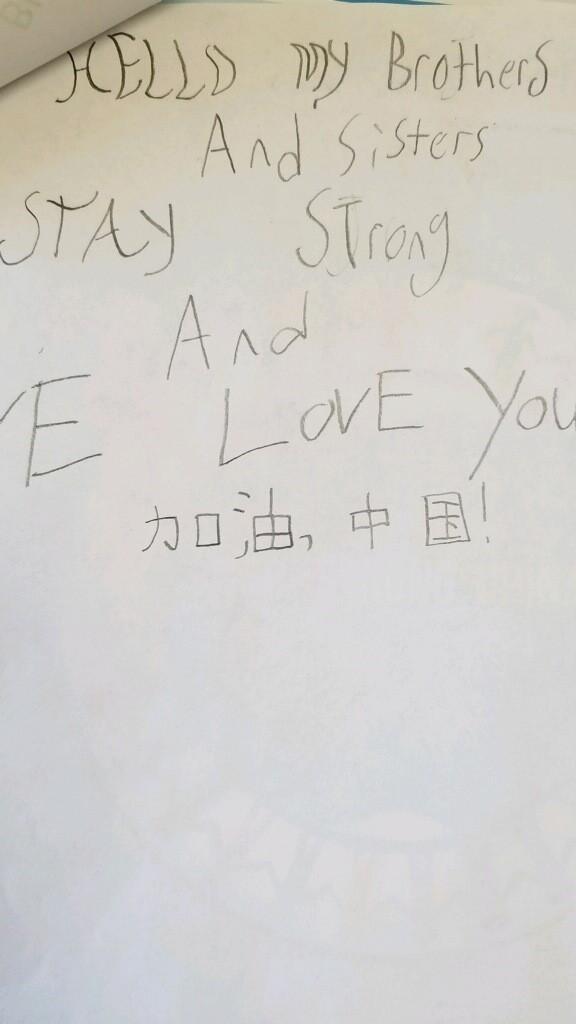 HELLO MY Brothers
And Sisters
STAY Strong
And
E LOVE You
加油,中国!